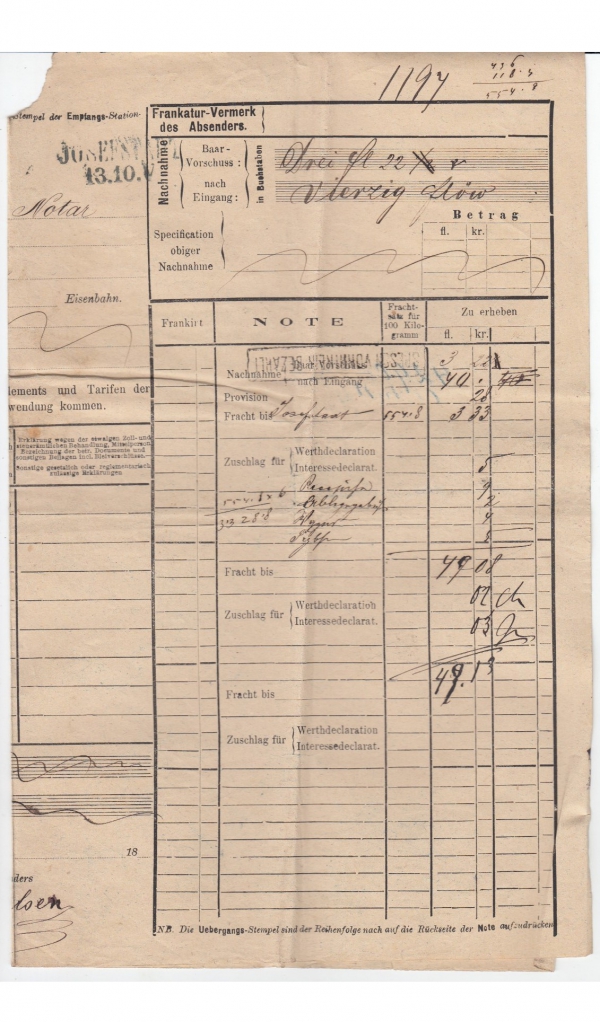 1197
436
118.3
554.8
Stempel der Empfangs-Station
JOSEFST
13.10.
Notar
Eisenbahn.
lements und Tarifen der
wendung kommen.
Erklärung wegen der etwaigen Zoll- und
steuerämtlichen Behandlung, Mittelsperson
Bezeichnung der betr. Documente und
sonstigen Beilagen incl. Bleiverschlüsse.
Sonstige gesetzlich oder reglementarisch
zulässige Erklärungen
18
ders
Frankatur-Vermerk
des Absenders.
Nachnahme
Baar-
Vorschuss:
nach
Eingang:
in Buchstaben
Drei fl 22
Vierzig
Specification
obiger
Nachnahme
Betrag
fl. kr.
Frankirt
NOTE
Fracht-
satz für
100 Kilo-
gramm
Zu erheben
fl. kr.
3 22
Nachnahme nach Eingang 40
Provision 28
Fracht bis 554.8 3 33
Zuschlag für Werthdeclaration
Interessedeclarat. 5
554.8x6 9
33 28.8 2
4
Fracht bis 49 08
Zuschlag für Werthdeclaration 02
Interessedeclarat. 03
49.13
Fracht bis
Zuschlag für Werthdeclaration
Interessedeclarat.
NB. Die Uebergangs-Stempel sind der Reihenfolge nach auf die Rückseite der Note aufzudrücken